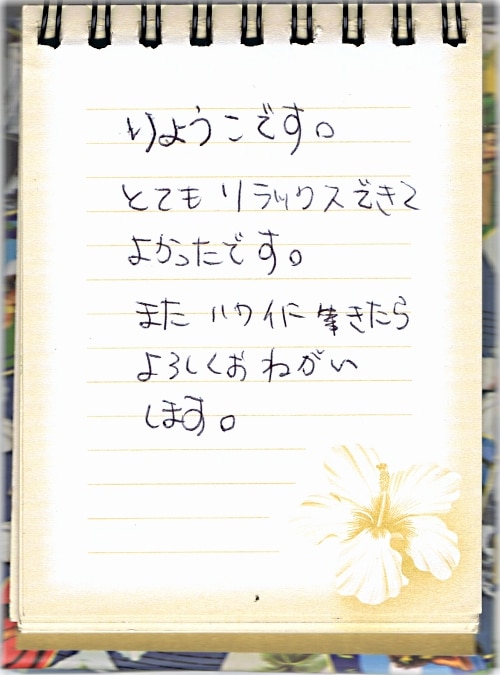 りようこです。
とても リラックスできて
よかったです。
また ハワイに きたら
よろしくおねがい
します。